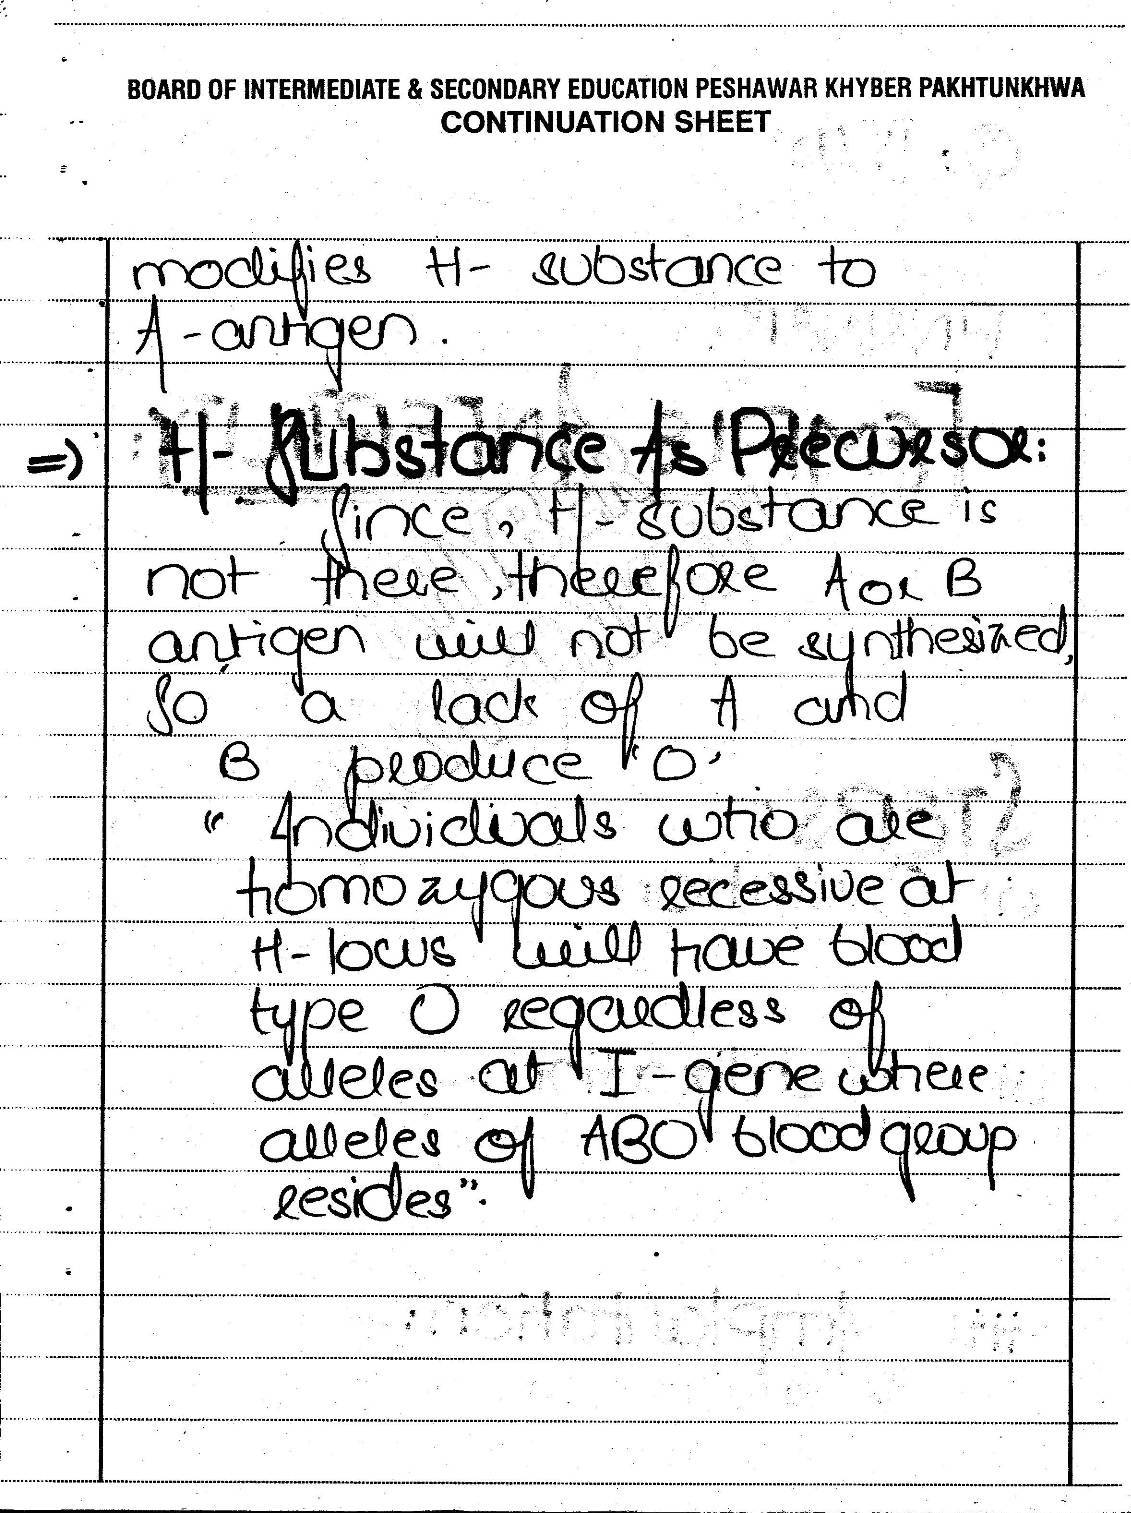 BOARD OF INTERMEDIATE & SECONDARY EDUCATION PESHAWAR KHYBER PAKHTUNKHWA
CONTINUATION SHEET
modifies H- substance to
A-antigen.
=> H- Substance As Precursor:
Since, H-substance is
not there, therefore A or B
antigen will not be synthesized,
So a lack of A and
B produce 'O'
" Individuals who are
homozygous recessive at
H-locus will have blood
type O regardless of
alleles at I-gene where
alleles of ABO blood group
resides".